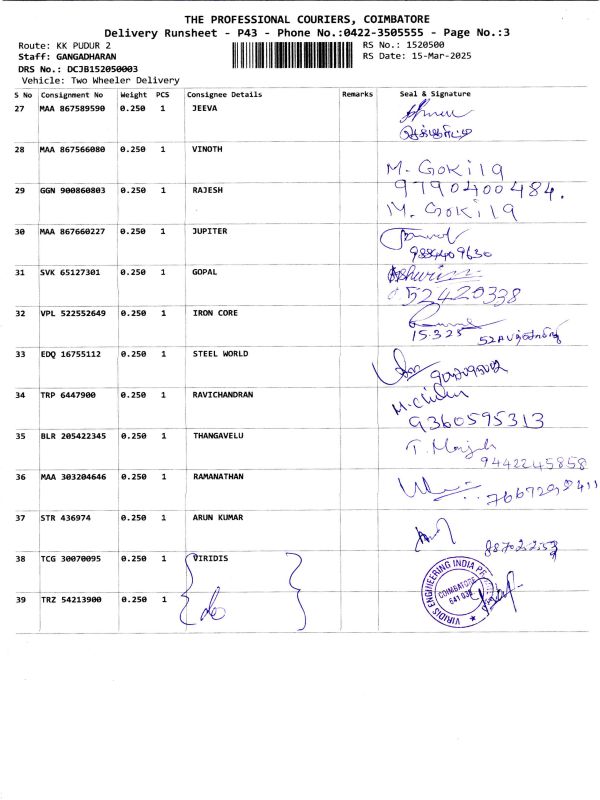 THE PROFESSIONAL COURIERS, COIMBATORE
Delivery Runsheet - P43 - Phone No.:0422-3505555 - Page No.:3
Route: KK PUDUR 2 RS No.: 1520500
Staff: GANGADHARAN RS Date: 15-Mar-2025
DRS No.: DCJB152050003
Vehicle: Two Wheeler Delivery
S No Consignment No Weight PCS Consignee Details Remarks Seal & Signature
27 MAA 867589590 0.250 1 JEEVA
28 MAA 867566080 0.250 1 VINOTH
M. Gokila
29 GGN 900860803 0.250 1 RAJESH 9790400484.
M. Gokila
30 MAA 867660227 0.250 1 JUPITER
9884409630
31 SVK 65127301 0.250 1 GOPAL Ashwin
52420338
32 VPL 522552649 0.250 1 IRON CORE
15.3.25
33 EDQ 16755112 0.250 1 STEEL WORLD
34 TRP 6447900 0.250 1 RAVICHANDRAN
9360595313
35 BLR 205422345 0.250 1 THANGAVELU
9442245858
36 MAA 303204646 0.250 1 RAMANATHAN
37 STR 436974 0.250 1 ARUN KUMAR
38 TCG 30070095 0.250 1 VIRIDIS
VIRIDIS ENGINEERING INDIA
COIMBATORE
39 TRZ 54213900 0.250 1 do